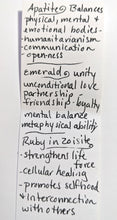 Apatite Balances
physical, mental &
emotional bodies-
-humanitarianism
-communication
-openness
Emerald unity
unconditional love
partnership
friendship-loyalty
mental balance
metaphysical ability
Ruby in Zoisite
-strengthens life
force
-cellular healing
-promotes selfhood
& Interconnection
with others